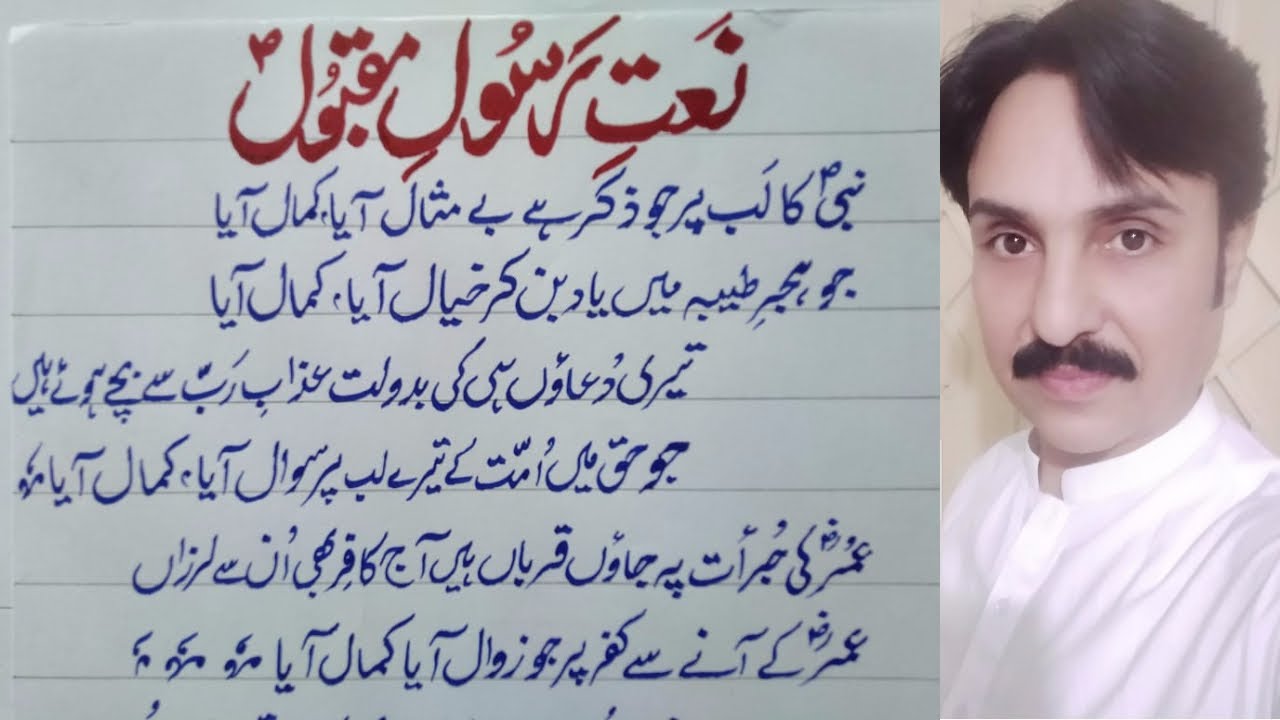 نَعتِ رَسُولِ مقبُولؐ
نبیؐ کا لَب پر جو ذکر ہے بے مثال آیا، کمال آیا
جو ہجرِ طیبہ میں یاد بن کر خیال آیا، کمال آیا
تیری دُعاؤں ہی کی بدولت عذابِ رَبّ سے بچے ہوئے ہیں
جو حق میں اُمّت کے تیرے لب پر سوال آیا، کمال آیا
عمُرؓ کی جُرأت پہ جاؤں قرباں ہیں آج کافِر بھی اُن سے لرزاں
عمُرؓ کے آنے سے کفر پر جو زوال آیا کمال آیا